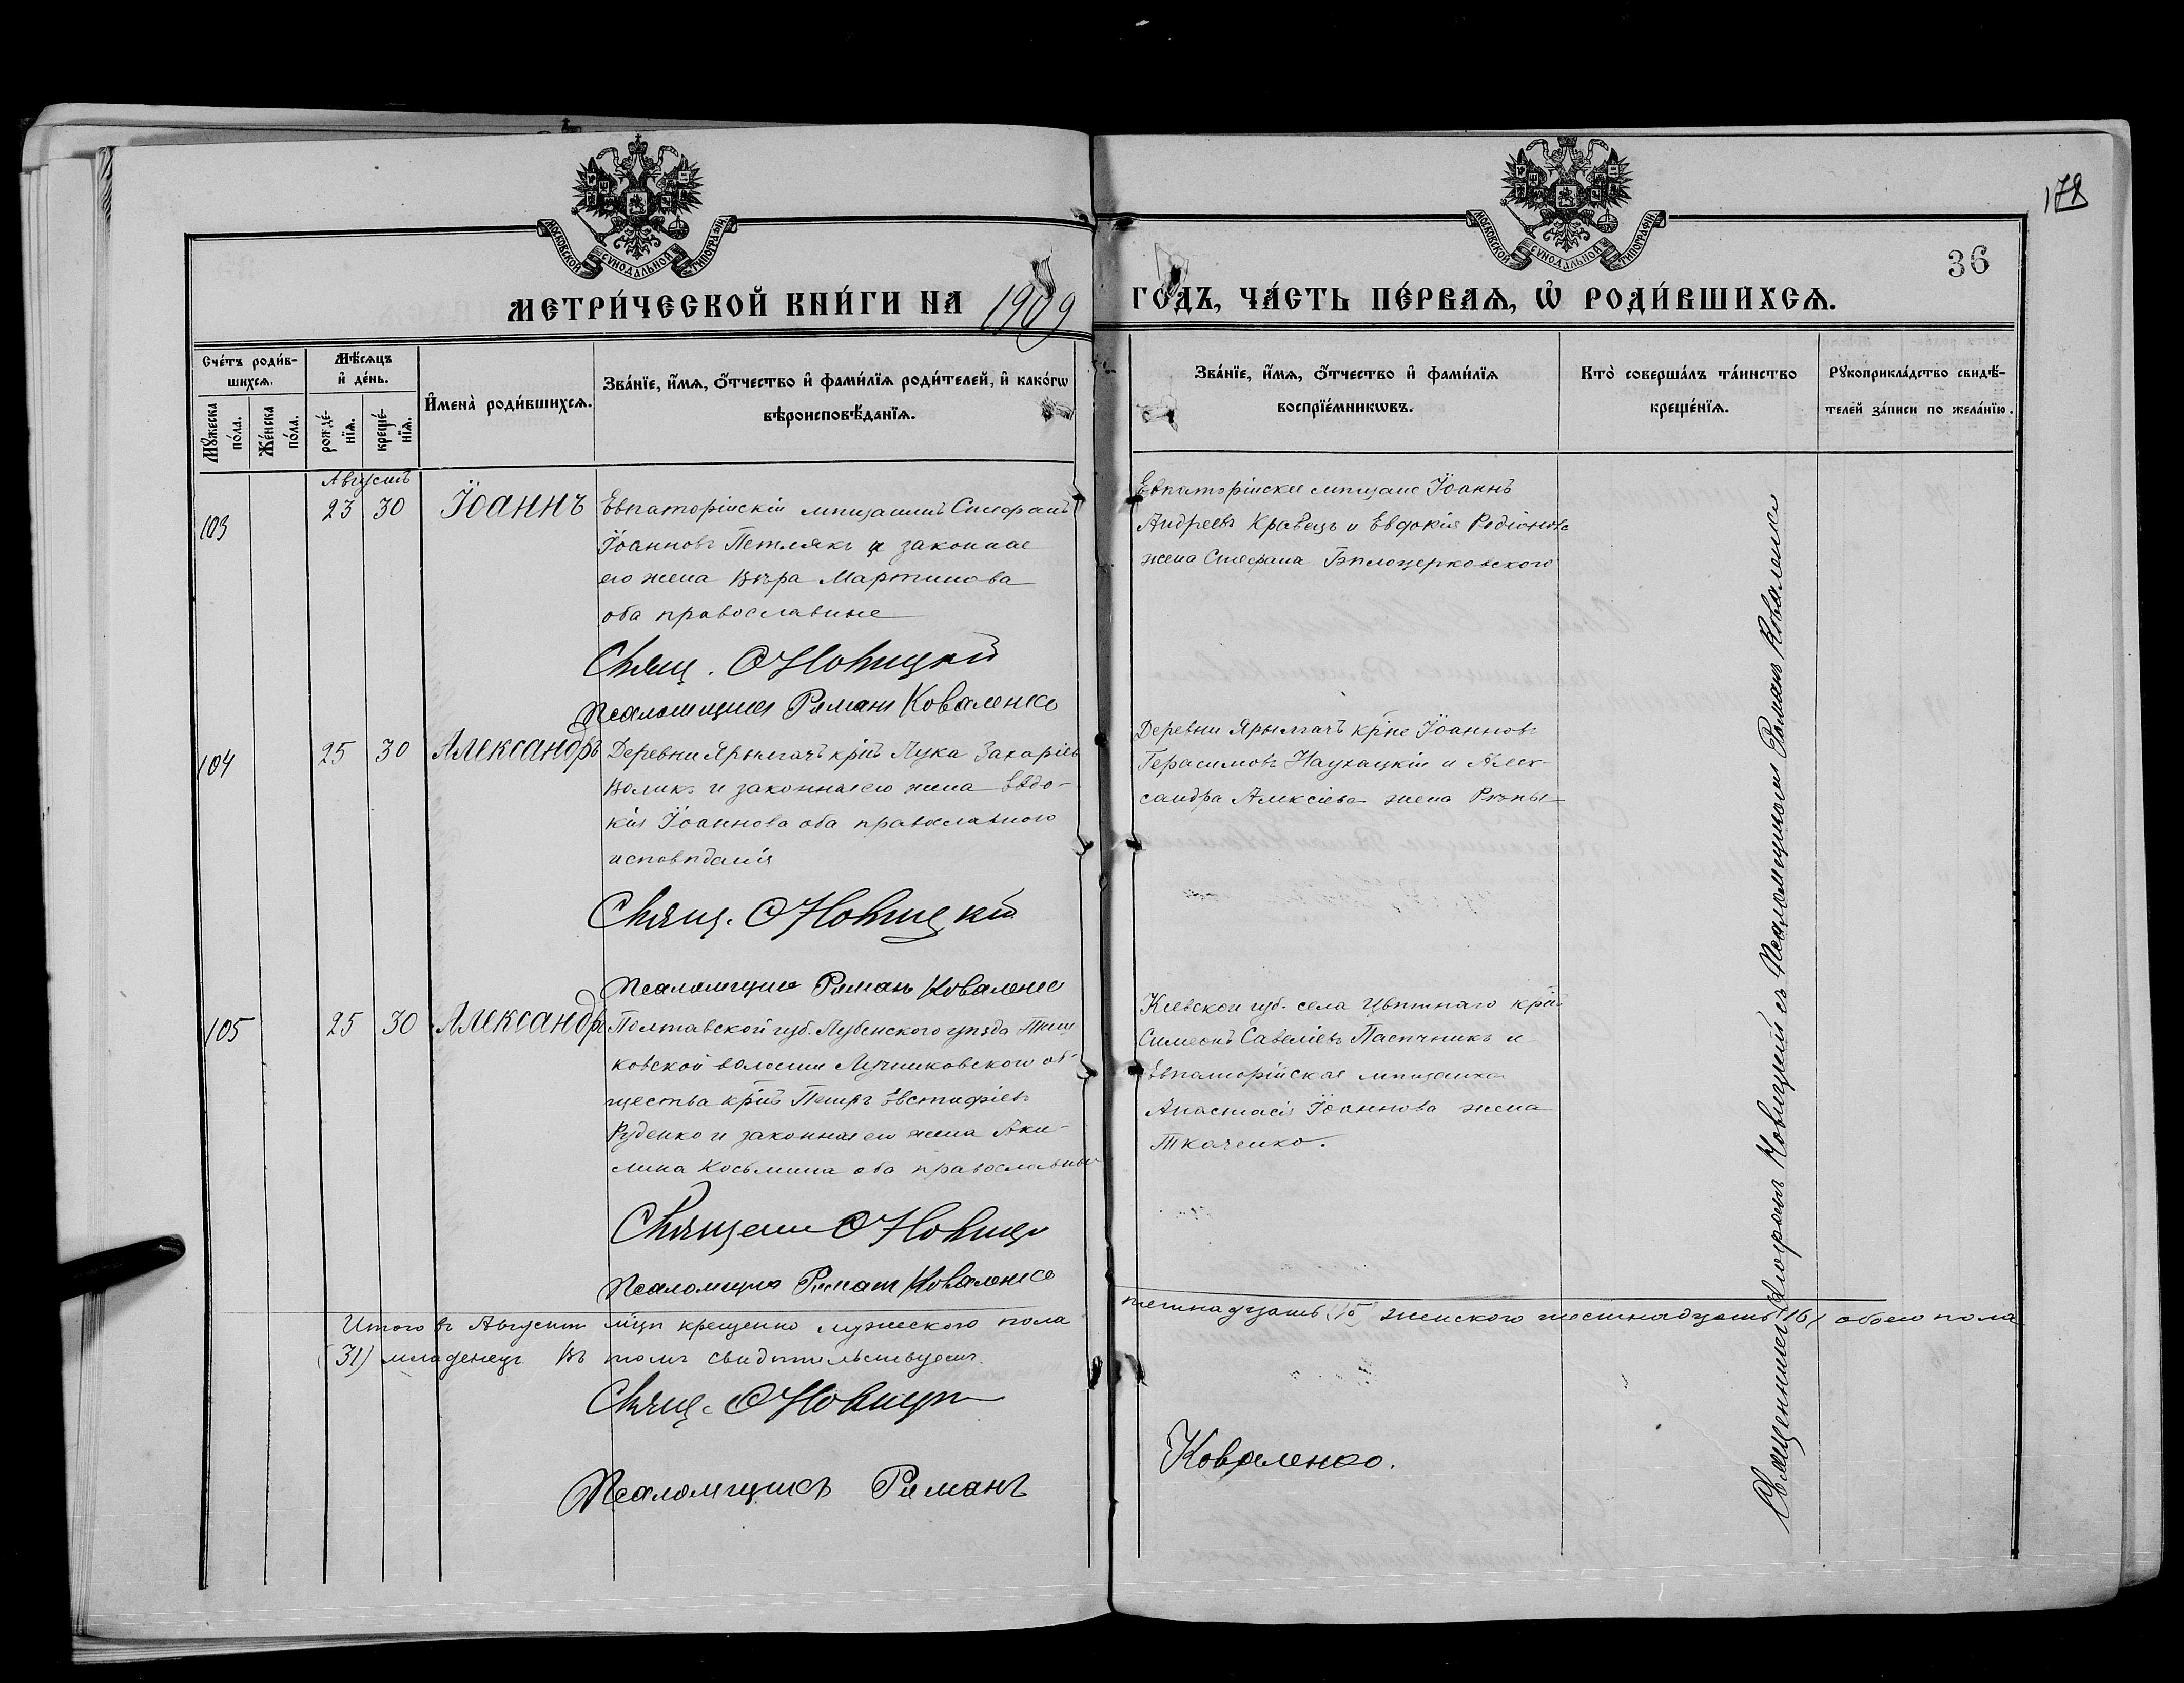 МОСКОВСКОЙ СѴНОДАЛЬНОЙ ТИПОГРАФІИ
МОСКОВСКОЙ СѴНОДАЛЬНОЙ ТИПОГРАФІИ
178
36
МЕТРИ́ЧЕСКОЙ КНИ́ГИ НА 1909
ГО́ДЪ, ЧА́СТЬ ПЕ́РВАѦ, Ѡ҆ РОДИ́ВШИХСѦ.
Сче́тъ роди́в-
шихсѧ.
Мꙋ́жеска по́ла.
Же́нска по́ла.
Мѣ́сѧцъ
и҆ де́нь.
рожде́-
нїѧ.
креще́-
нїѧ.
И҆мена̀ роди́вшихсѧ.
Зва́нїе, и҆́мѧ, ѻ҆́тчество и҆ фами́лїѧ роди́телей, и҆ како́гѡ
вѣроисповѣ́данїѧ.
Зва́нїе, и҆́мѧ, ѻ҆́тчество и҆ фами́лїѧ
воспрїе́мникѡвъ.
Кто̀ соверша́лъ та́инство
креще́нїѧ.
Рꙋкоприкла́дство свидѣ́-
телей за́писи по жела́нїю.
Августъ
103 23 30 Іоаннъ
Евпаторійскій мѣщанинъ Стефанъ
Іоанновъ Петлякъ и законная
его жена Вѣра Мартинова
оба православные
Свящ. О Новицкій
Псаломщикъ Романъ Коваленко
Евпаторійские мѣщане Іоаннъ
Андреевъ Кравецъ и Евдокія Родіонова
жена Стефана Бѣлоцерковского
104 25 30 Александръ
Деревни Ярылгачъ крнъ Лука Захаріевъ
Воликъ и законная его жена Евдо-
кія Іоаннова оба православного
исповѣданія
Свящ. О Новицкій
Псаломщикъ Романъ Коваленко
Деревни Ярылгачъ крне Іоанновъ
Герасимовъ Наухацкій и Алек-
сандра Алексіева жена Рѣпы
105 25 30 Александръ
Полтавской губ. Лубенского уѣзда
ковской волости Лучниковского об-
щества крнъ Петръ Евстафіевъ
Руденко и законная его жена Аки-
лина Косьмина оба православные
Священ О Новицк
Псаломщикъ Романъ Коваленко
Кіевской губ. села Цвѣтнаго крнъ
Симеонъ Савеліевъ Пасѣчникъ и
Евпаторійская мѣщанка
Анастасія Іоаннова жена
Ткаченко.
Священникъ Новицкій съ Псаломщикомъ Романъ Коваленко
Итого въ Августѣ мцѣ крещено мужеского пола пятнадцать (15) женского шестнадцать (16) обоего пола
(31) младенецъ. Въ томъ свидѣтельствуемъ.
Свящ. О Новицк
Псаломщикъ Романъ Коваленко.